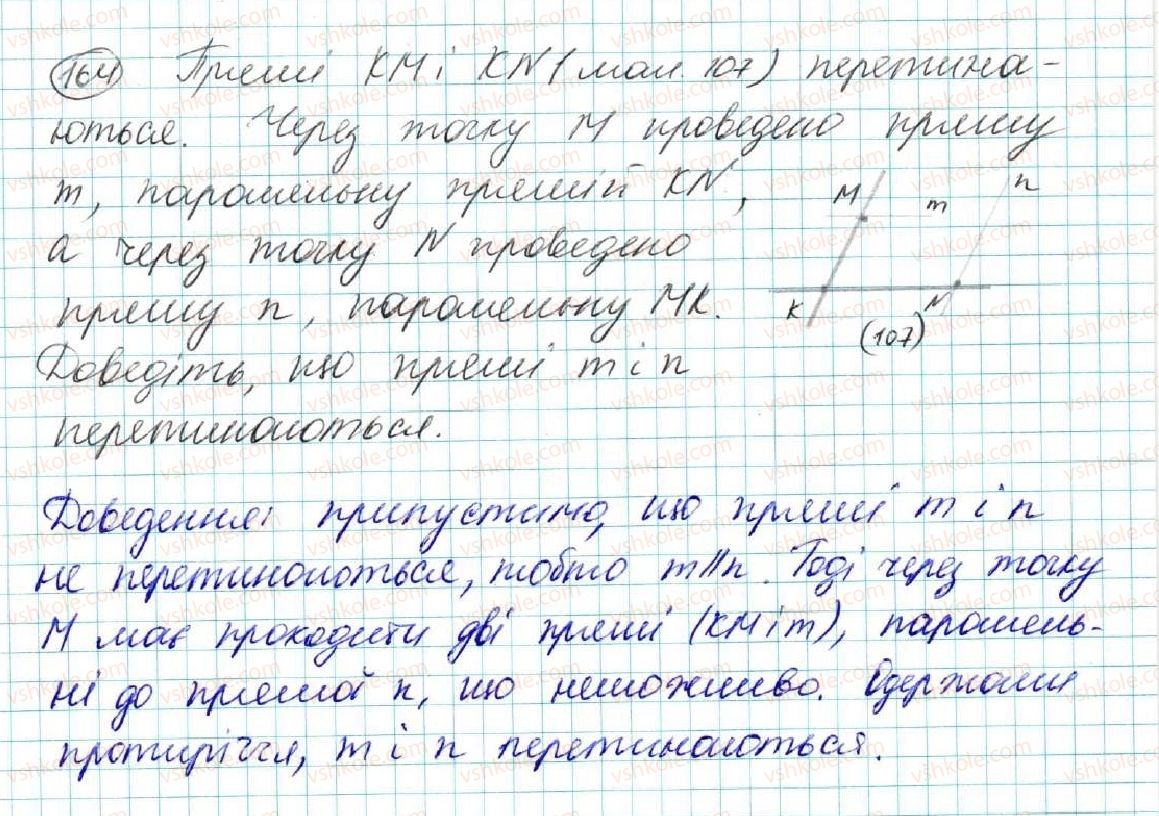 164 Прямі KM і KN (мал. 107) перетина-
ються. Через точку M проведено пряму
m, паралельну прямій KN,
а через точку N проведено
пряму n, паралельну MK.
Доведіть, що прямі m і n
перетинаються.
M m n
K N
(107)
Доведення: припустимо, що прямі m і n
не перетинаються, тобто m||n. Тоді через точку
M має проходити дві прямі (KM і m), паралель-
ні до прямої n, що неможливо. Одержали
протиріччя, m і n перетинаються.